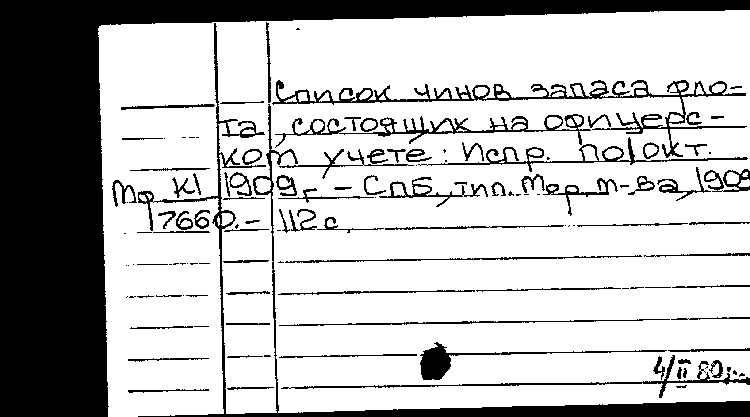 Список чинов запаса фло-
та, состоящих на офицерс-
ком учете: Испр. по 1 окт.
Мф К1 1909 г. – СПб, тип. Мор. м-ва, 1909
17660. – 112 с.
4/II 80